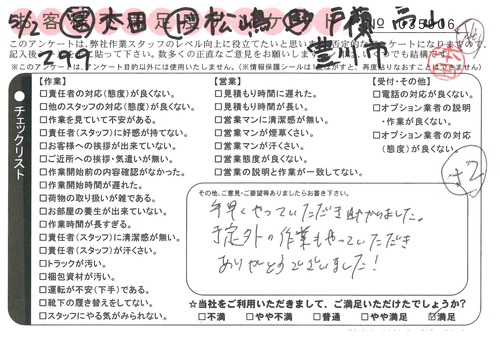 5/2 ㊪ 太田 ㊦ 松嶋
No 035006
このアンケートは、弊社作業スタッフのレベル向上に役立てたいと思い
299
豊川市
※このアンケート目的以外には使用いたしません。
チェックリスト
【作業】
□責任者の対応(態度)が良くない。
□他のスタッフの対応(態度)が良くない。
□作業を見ていて不安がある。
□責任者(スタッフ)に好感が持てない。
□お客様への挨拶が出来ていない。
□ご近所への挨拶・気遣いが無い。
□作業開始前の内容確認がなかった。
□作業開始時間が遅れた。
□荷物の取り扱いが雑である。
□お部屋の養生が出来ていない。
□作業時間が長すぎる。
□責任者(スタッフ)に清潔感が無い。
□責任者(スタッフ)が汗くさい。
□トラックが汚い。
□梱包資材が汚い。
□運転が不安(下手)である。
□靴下の履き替えをしてない。
□スタッフにやる気がみられない。
【営業】
□見積もり時間に遅れた。
□見積もり時間が長い。
□営業マンに清潔感が無い。
□営業マンが煙草くさい。
□営業マンが汗くさい。
□営業態度が良くない。
□営業の説明と作業が一致してない。
【受付・その他】
□電話の対応が良くない。
□オプション業者の説明
・作業が良くない。
□オプション業者の対応
(態度)が良くない。
+2
その他、ご意見・ご要望等ありましたらお書き下さい。
手早くやっていただき助かりました。
予定外の作業もやっていただき
ありがとうございました!
☆当社をご利用いただきまして、ご満足いただけたでしょうか?
□不満 □やや不満 □普通 □やや満足 ☑満足